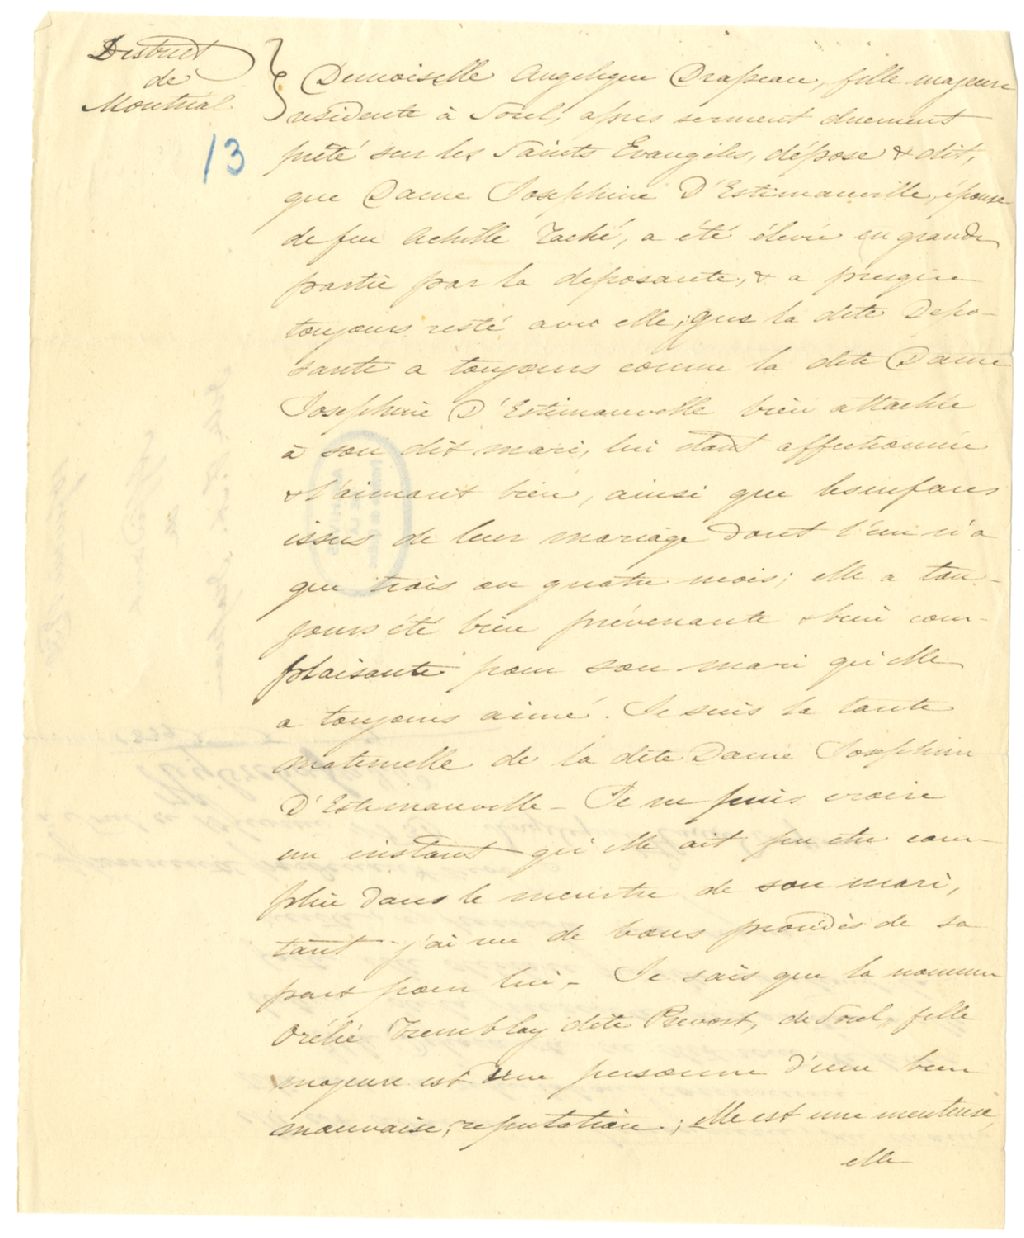 District
de
Montréal
13
Demoiselle Angelique Drapeau, fille majeure
résidente à Sorel, après serment duement
prêté sur les Saints Evangiles, dépose & dit,
que Dame Josephine D'Estimauville, épouse
de feu Achille Taché, a été élevée en grande
partie par la deposante, & a presque
toujours resté avec elle; que la dite Depo-
sante a toujours connu la dite Dame
Josephine D'Estimauville bien attachée
à son dit mari, lui étant affectionnée
& l'aimant bien, ainsi que les enfans
issus de leur mariage dont l'un n'a
que trois ou quatre mois; elle a tou-
jours été bien prévenante & bien com-
plaisante pour son mari qu'elle
a toujours aimé. Je suis la tante
maternelle de la dite Dame Josephine
D'Estimauville - Je ne puis croire
un instant qu'elle ait pu être com-
plice dans le meurtre de son mari,
tant j'ai vu de bons procédés de sa
part pour lui - Je sais que la nommée
Orélie Tremblay dite Prevost, de Sorel, fille
majeure est une personne d'une bien
mauvaise reputation; elle est une menteuse,
elle